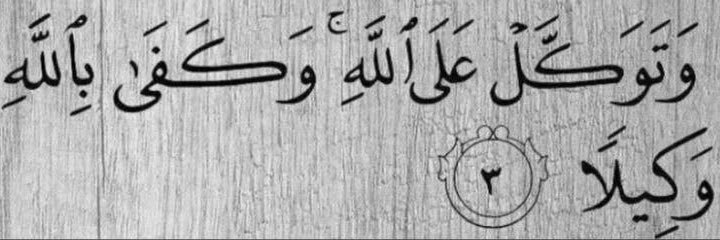 وَتَوَكَّلْ عَلَى ٱللَّهِ ۚ وَكَفَىٰ بِٱللَّهِ
وَكِيلًا ٣